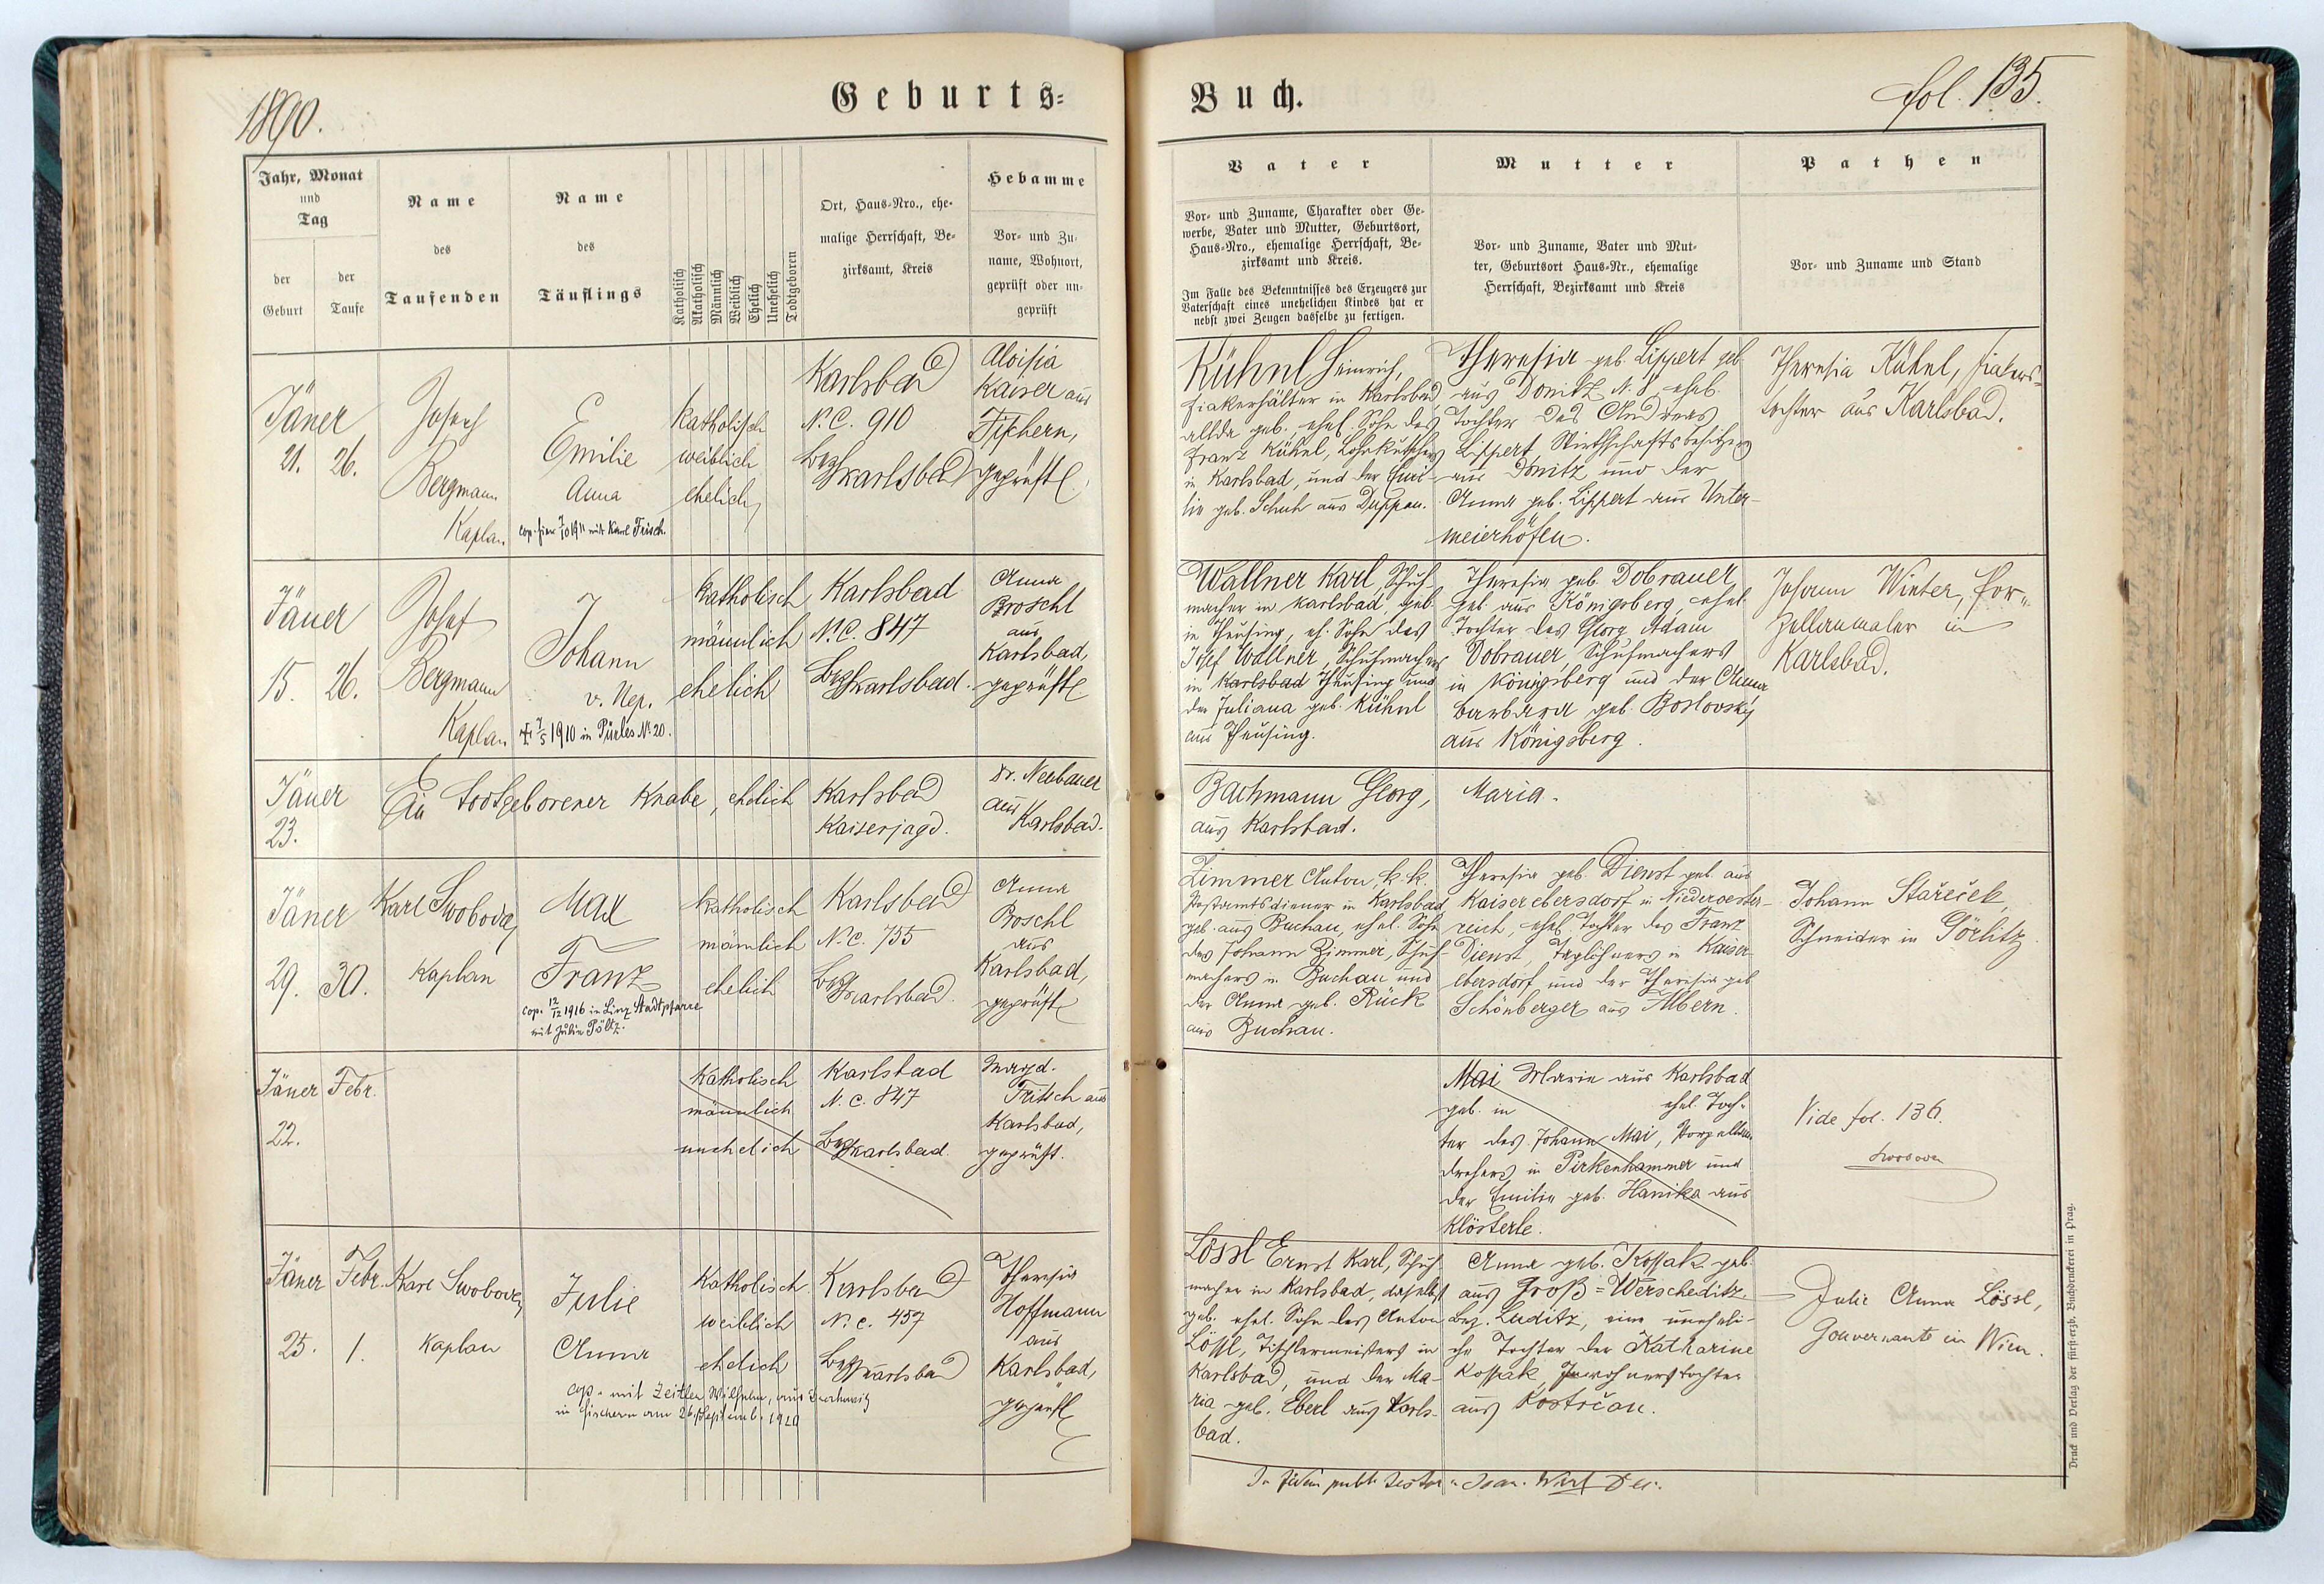 1890.
Geburts-
Jahr, Monat
und
Tag
der
Geburt
der
Taufe
Name
des
Taufenden
Name
des
Täuflings
Katholisch
Akatholisch
Männlich
Weiblich
Ehelich
Unehelich
Todtgeboren
Ort, Haus-Nro., ehe-
malige Herrschaft, Be-
zirksamt, Kreis
Hebamme
Vor- und Zu-
name, Wohnort,
geprüft oder un-
geprüft
Jäner
21. 26.
Josef
Bergmann
Kaplan
Emilie
Anna
cop. hier 1911 mit Karl Frisch.
katholisch
weiblich
ehelich
Karlsbad
N.C. 910
Bez Karlsbad
Aloisia
Kaiser aus
Fischern,
geprüft
Jäner
15. 26.
Josef
Bergmann
Kaplan
Johann
v. Nep.
† 7/5 1910 in Pürles Nº 20.
katholisch
männlich
ehelich
Karlsbad
N.C. 847
Bez Karlsbad.
Anna
Broschl
aus
Karlsbad,
geprüft
Jäner
23.
Ein todtgeborener Knabe, ehelich
Karlsbad
Kaiserjagd.
Dr. Neubauer
aus Karlsbad.
Jäner
29. 30.
Karl Swoboda
Kaplan
Max
Franz
cop. 12/12 1916 in Linz Stadtpfarre
mit Julie Pöltz.
katholisch
männlich
ehelich
Karlsbad
N.C. 755
Bez Karlsbad.
Anna
Broschl
aus
Karlsbad,
geprüft
Jäner Febr.
22.
Katholisch
männlich
unehelich
Karlsbad
N.C. 847
Bez Karlsbad
Magd.
Fritsch aus
Karlsbad,
geprüft.
Jäner Febr.
25. 1.
Karl Swoboda
Kaplan
Julie
Anna
cop. mit Zeitler Wilhelm, aus
in Fischern am 26. Septemb. 1920
Katholisch
weiblich
ehelich
Karlsbad
N.C. 457
Bez Karlsbad
Theresia
Hoffmann
aus
Karlsbad,
geprüft
Buch.
fol. 135.
Vater
Vor- und Zuname, Charakter oder Ge-
werbe, Vater und Mutter, Geburtsort,
Haus-Nro., ehemalige Herrschaft, Be-
zirksamt und Kreis.
Im Falle des Bekenntnisses des Erzeugers zur
Vaterschaft eines unehelichen Kindes hat er
nebst zwei Zeugen dasselbe zu fertigen.
Mutter
Vor- und Zuname, Vater und Mut-
ter, Geburtsort Haus-Nr., ehemalige
Herrschaft, Bezirksamt und Kreis
Pathen
Vor- und Zuname und Stand
Kühnl Heinrich,
Fiakerhälter in Karlsbad,
allda geb. ehel. Sohn des
Franz Kühnl, Lohnkutschers
in Karlsbad, und der Emi-
lie geb. Schuh aus Duppau.
Theresia geb. Lippert geb.
aus Donitz N. 8 ehel.
Tochter des Andreas
Lippert, Wirthschaftsbesitzers
aus Donitz und der
Anna geb. Lippert aus Unter-
meierhöfen.
Theresia Kühnl, Fiakers-
tochter aus Karlsbad.
Wallner Karl, Schuh-
macher in Karlsbad, geb.
in Theusing, eh. Sohn des
Josef Wallner, Schuhmachers
in Karlsbad Theusing und
der Juliana geb. Kühnl
aus Theusing.
Theresia geb. Dobrauer
geb. aus Königsberg, ehel.
Tochter des Georg Adam
Dobrauer, Schuhmachers
in Königsberg und der Anna
Barbara geb. Boslovsky
aus Königsberg.
Johann Winter, Por-
zellanmaler in
Karlsbad.
Bachmann Georg,
aus Karlsbad.
Maria.
Zimmer Anton, k.k.
Postamtsdiener in Karlsbad
geb. aus Buchau, ehel. Sohn
des Johann Zimmer, Schuh-
machers in Buchau und
der Anna geb. Rück
aus Buchau.
Theresia geb. Dienst geb. aus
Kaiserebersdorf in Niederoester-
reich, ehel. Tochter des Franz
Dienst, Taglöhners in Kaiser-
ebersdorf und der Theresia geb
Schönberger aus Albern.
Johann Stařeček,
Schneider in Görlitz
Mai Marie aus Karlsbad
geb. in ehel. Toch-
ter des Johann Mai, Porzellan-
drehers in Pirkenhammer und
der Emilie geb. Hanika aus
Klösterle.
Vide fol. 136.
Swoboda
Lössl Ernst Karl, Schuh
macher in Karlsbad, daselbst
geb. ehel. Sohn des Anton
Lössl, Tischlermeisters in
Karlsbad, und der Ma-
ria geb. Eberl aus Karls-
bad.
Anna geb. Kossak geb.
aus Groß-Werscheditz
Bez. Luditz, eine uneheli-
che Tochter der Katharine
Kossak, Inwohnerstochter
aus Kostrčan.
Julie Anna Lössl,
Gouvernante in Wien.
In fidem publ. testor
Druck und Verlag der fürst-erzb. Buchdruckerei in Prag.